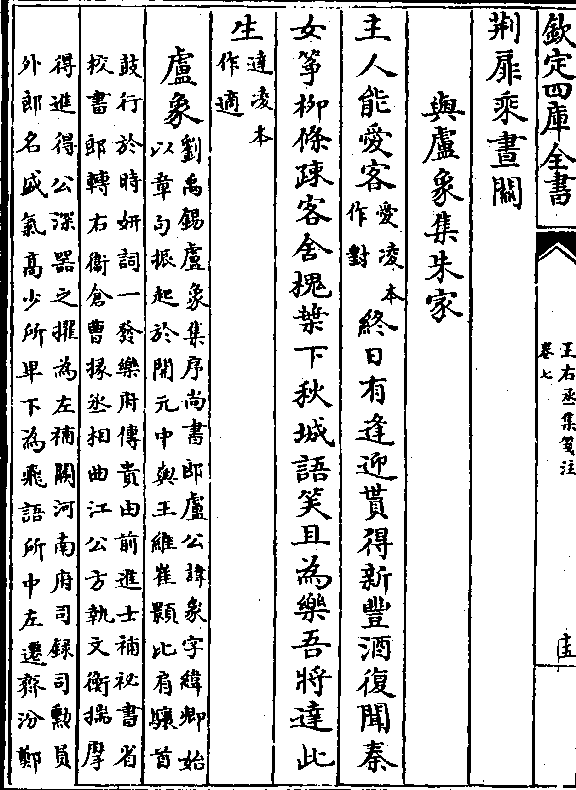 欽定四庫全書
王右丞集箋注
卷七
荆扉乗晝關
與盧象集朱家
主人能愛客愛凌本
作對終日有逢迎貰得新豐酒復聞秦
女箏柳條踈客舍槐葉下秋城語笑且為樂吾將達此
生達凌本
作適
盧象劉禹錫盧象集序尚書郎盧公諱象字緯卿始
以章句振起於開元中與王維崔顥比肩驤首
鼓行於時妍詞一發樂府傳貴由前進士補秘書省
校書郎轉右衞倉曹掾丞相曲江公方執文衡揣摩
得進得公深器之擢為左補闕河南府司録司勲員
外郎名盛氣髙少所卑下為飛語所中左遷齊汾鄭